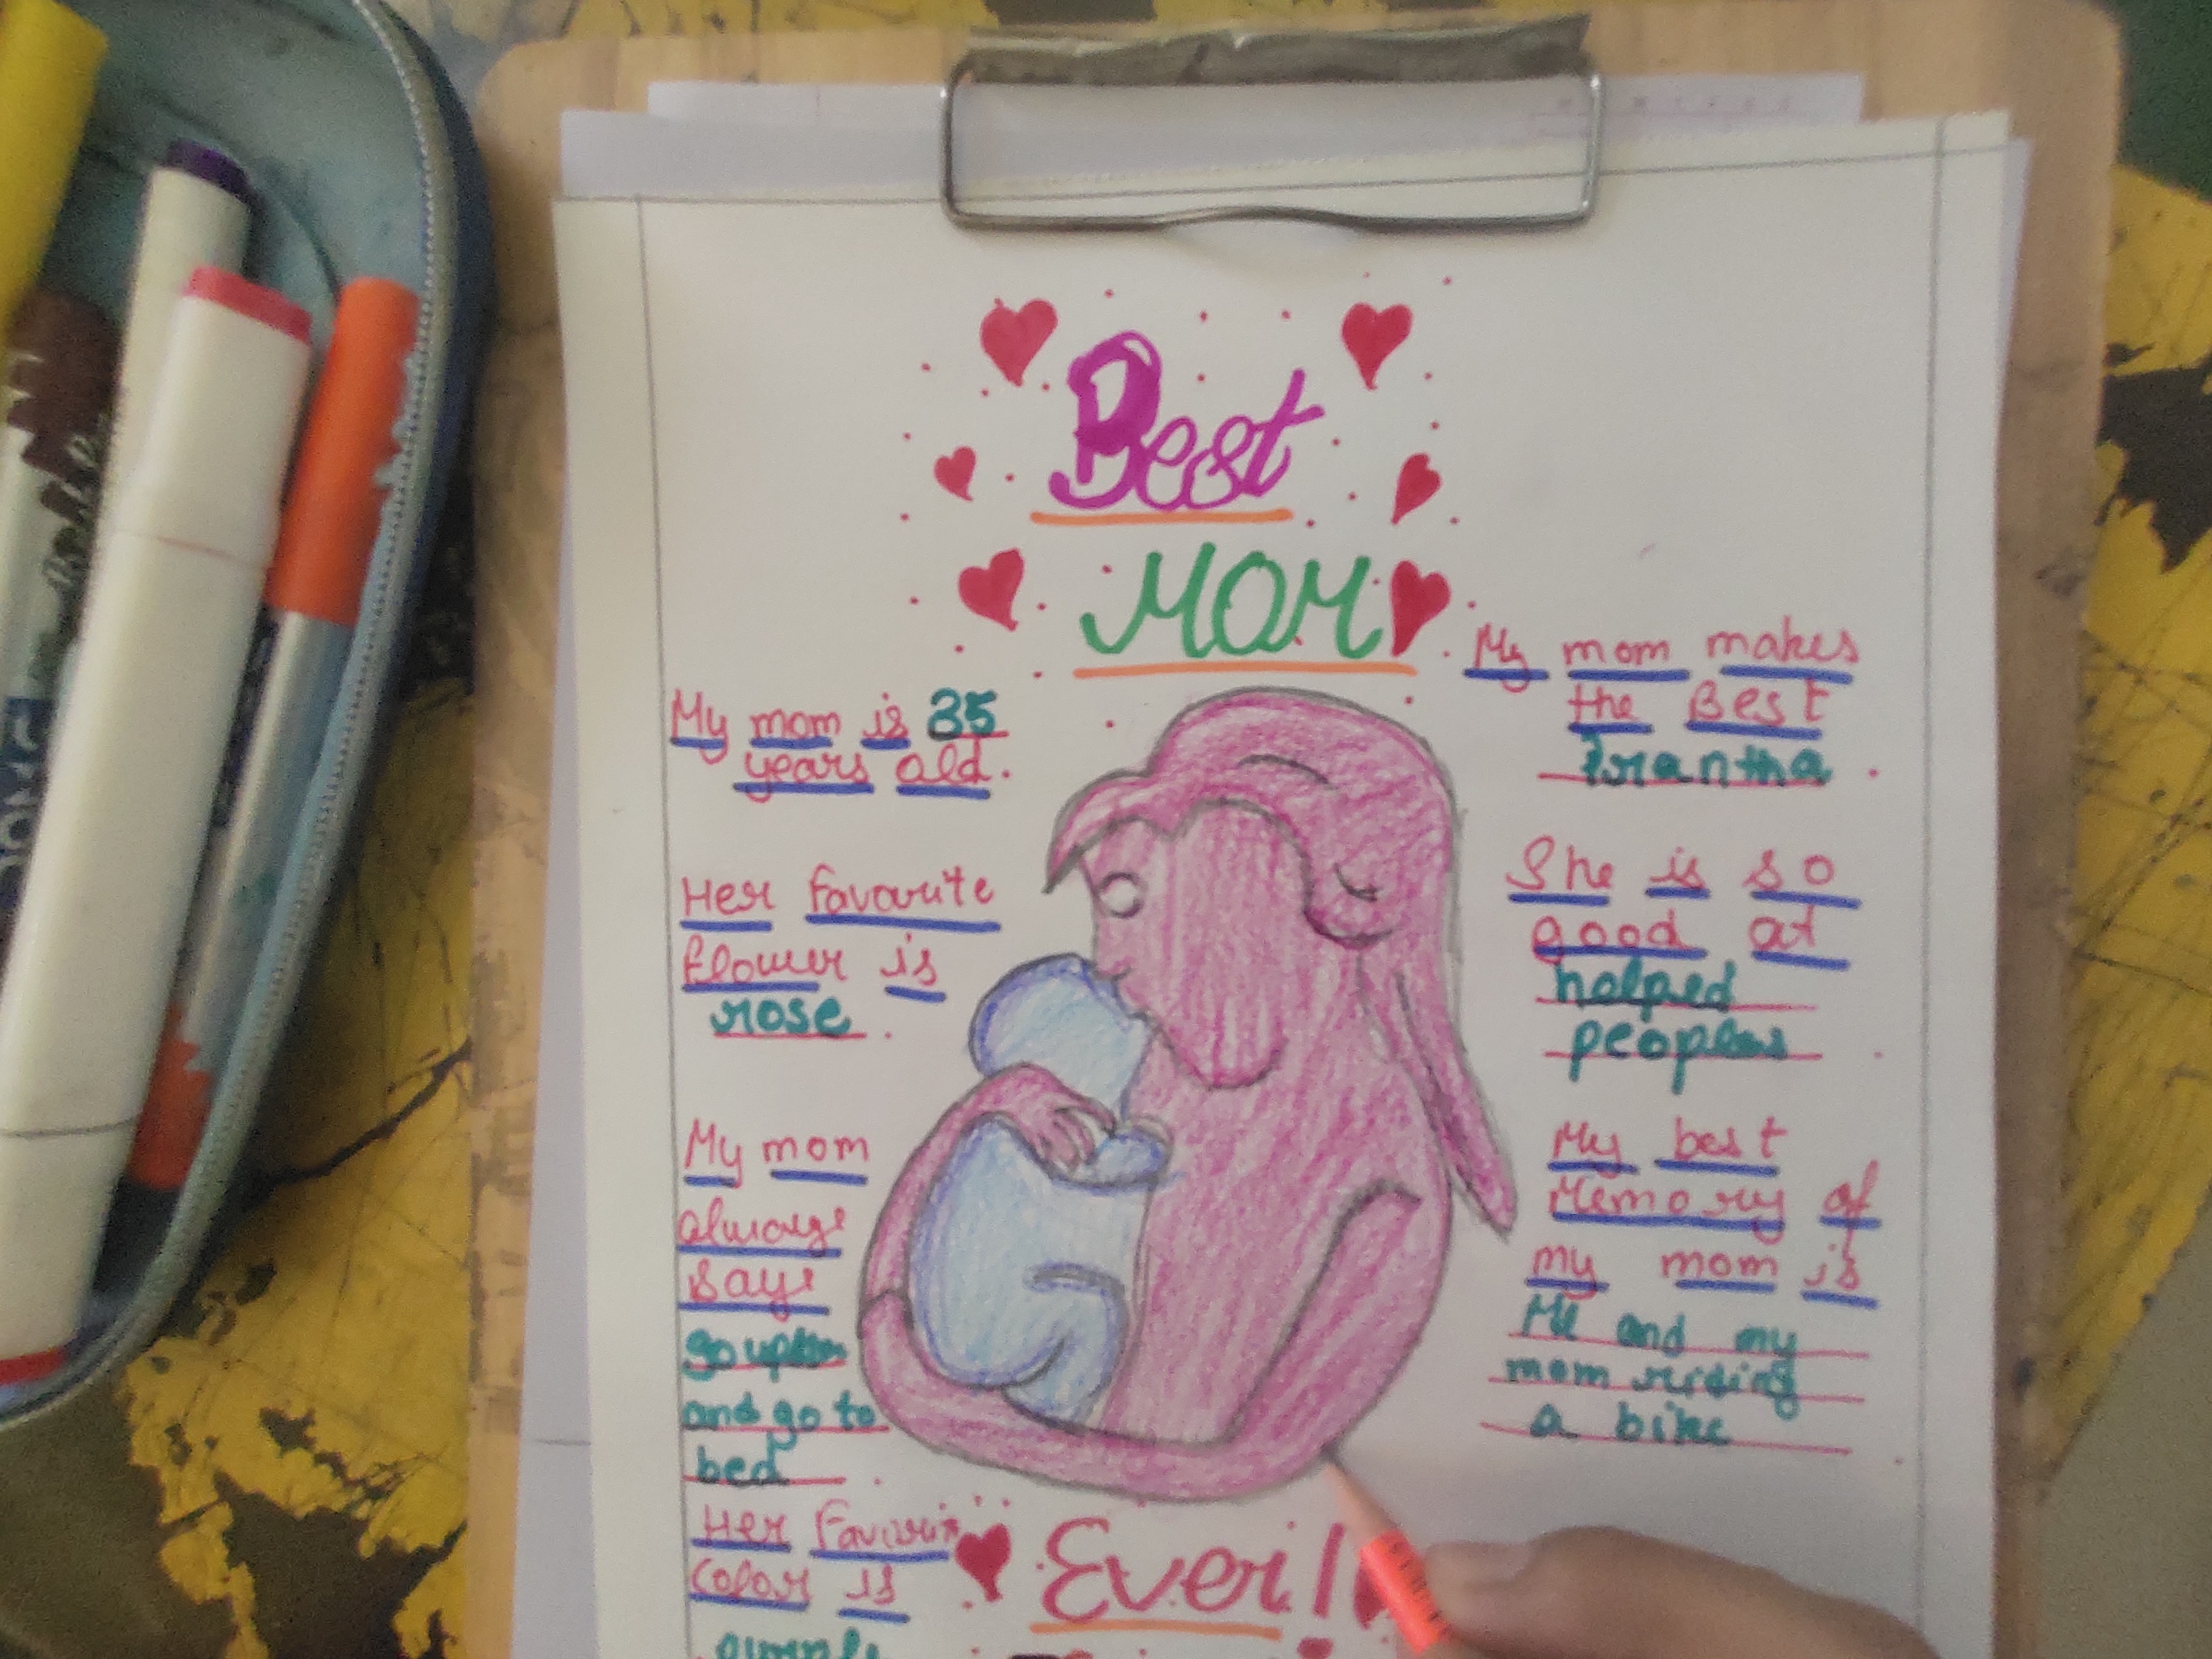 Best
MOM
My mom is 35
years old.
Her Favourite
flower is
rose.
My mom
always
says
go upstm
and go to
bed.
Her Favourit
color is
My mom makes
the Best
Prantha.
She is so
good at
helped
peoples.
My best
Memory of
my mom is
Me and my
mom riding
a bike
Ever!